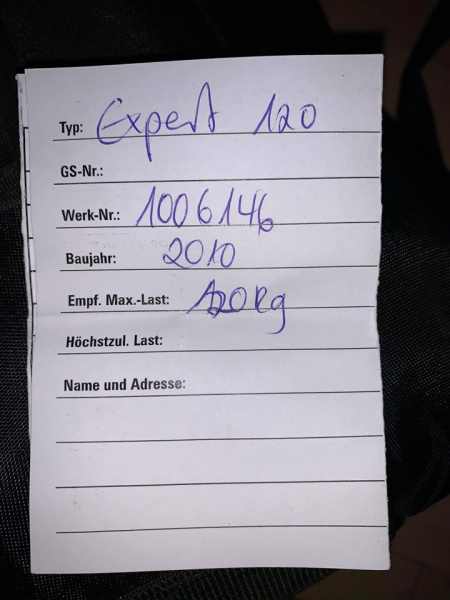 Typ: Expert 120
GS-Nr.:
Werk-Nr.: 1006146
Baujahr: 2010
Empf. Max.-Last: 120kg
Höchstzul. Last:
Name und Adresse: